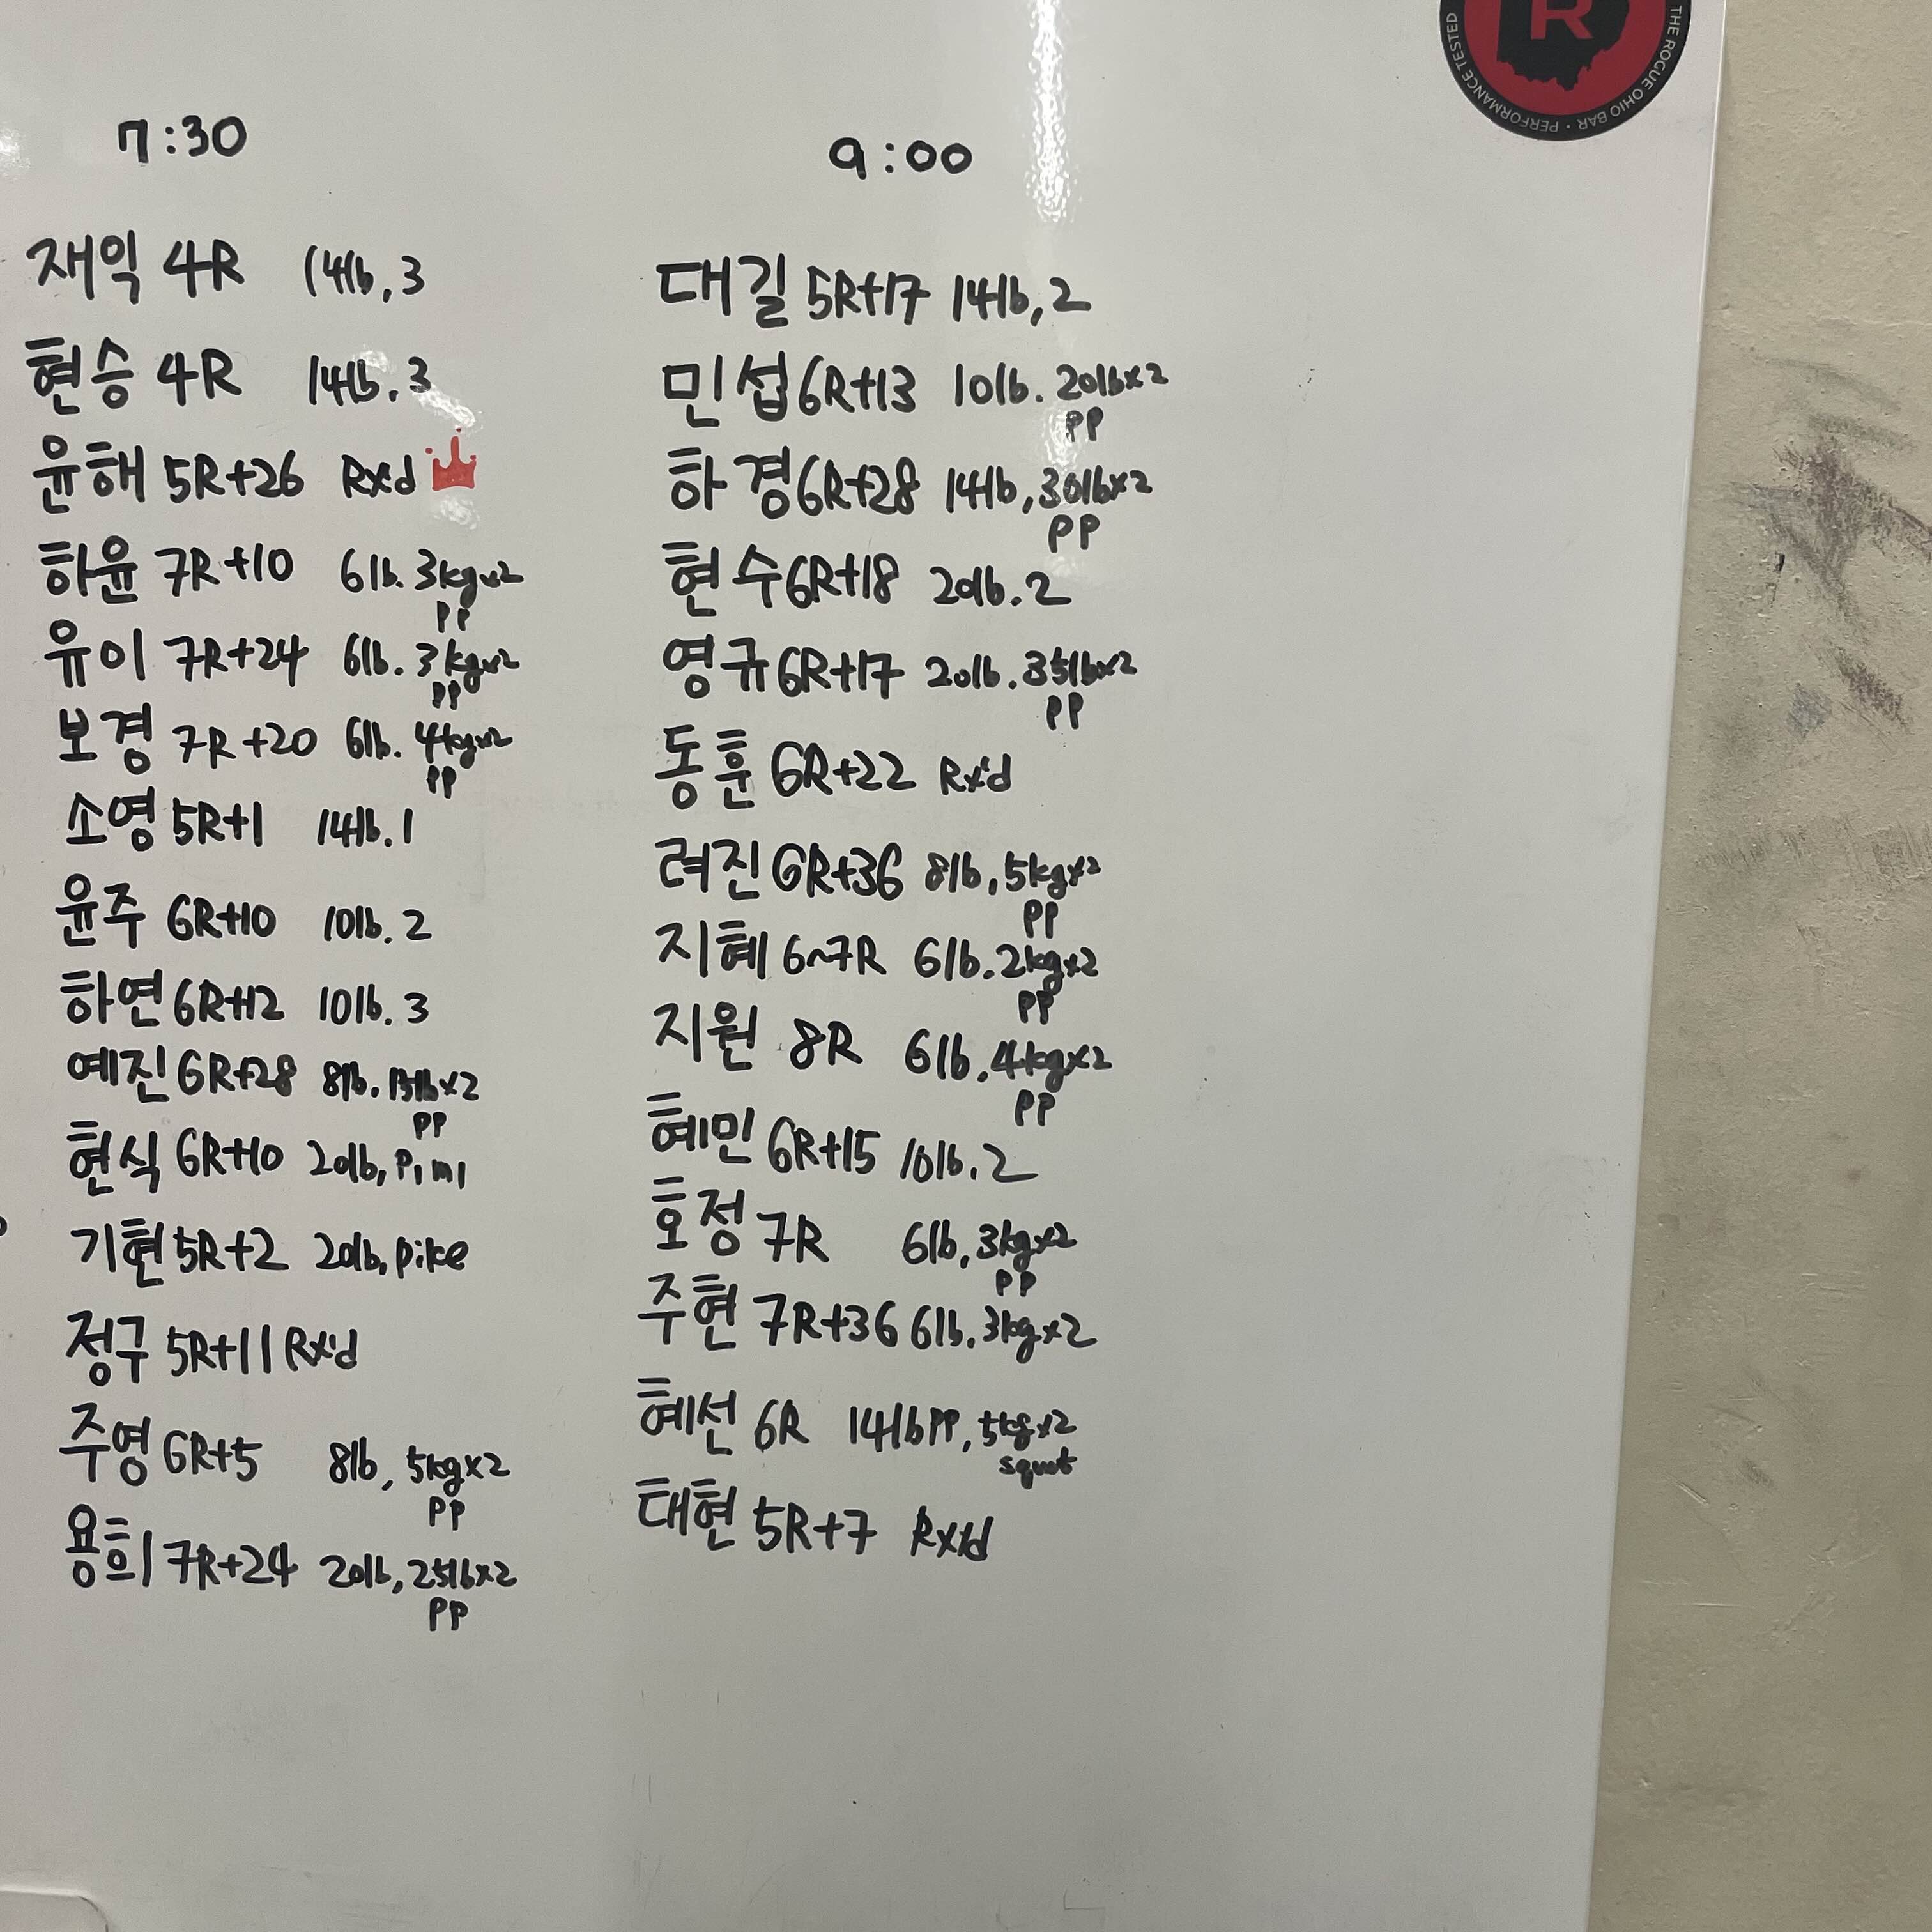 THE ROGUE OHIO BAR · PERFORMANCE TESTED
R
7:30
재익 4R 14lb, 3
현승 4R 14lb. 3
윤해 5R+26 Rx'd
하윤 7R+10 6lb. 3kgx2
PP
유이 7R+24 6lb. 3kgx2
PP
보경 7R+20 6lb. 4kgx2
PP
소영 5R+1 14lb. 1
윤주 6R+10 10lb. 2
하연 6R+12 10lb. 3
예진 6R+28 8lb. 15lbx2
PP
현식 6R+10 20lb, P, m1
기현 5R+2 20lb, pike
정구 5R+11 Rx'd
주영 6R+5 8lb, 5kgx2
PP
용희 7R+24 20lb, 25lbx2
PP
9:00
대길 5R+17 14lb, 2
민섭 6R+13 10lb. 20lbx2
PP
하경 6R+28 14lb, 30lbx2
PP
현수 6R+18 20lb. 2
영규 6R+17 20lb. 35lbx2
PP
동훈 6R+22 Rx'd
려진 6R+36 8lb, 5kgx2
PP
지혜 6~7R 6lb. 2kgx2
PP
지원 8R 6lb. 4kgx2
PP
혜민 6R+15 10lb. 2
호정 7R 6lb, 3kgx2
PP
주현 7R+36 6lb. 3kgx2
혜선 6R 14lb PP, 5kgx2
squat
태현 5R+7 Rx'd